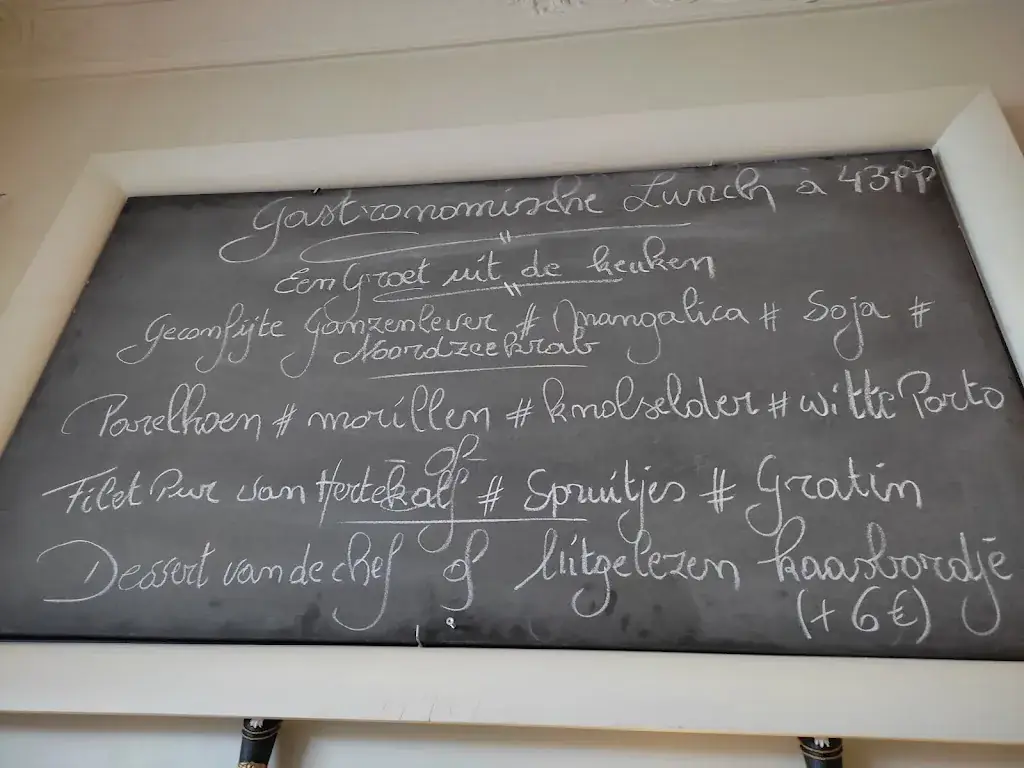 Gastronomische Lunch à 43pp
Een Groet uit de keuken
Geconfijte Ganzenlever # Mangalica # Soja #
Noordzeekrab
Parelhoen # morillen # knolselder # witte Porto
- of -
Filet Pur van Hertekalf # Spruitjes # Gratin
Dessert van de chef of Uitgelezen kaasbordje
(+ 6€)